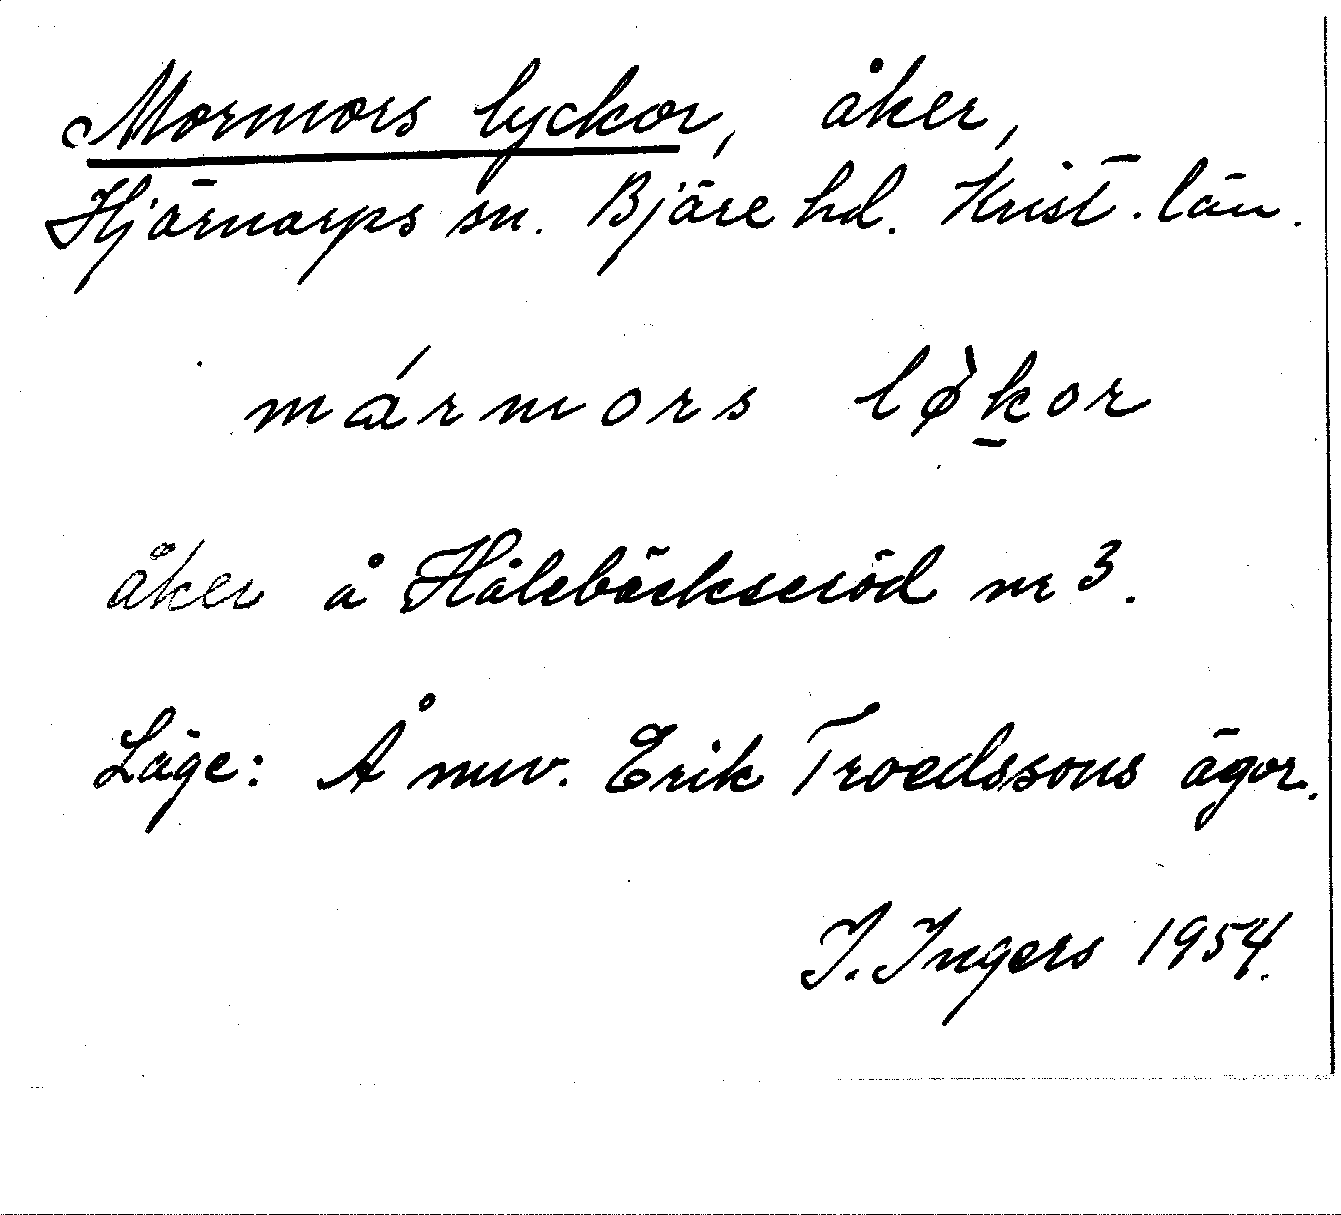 Mormors lyckor, åker,
Hjärnarps sn. Bjäre hd. Krist. län.
mármors lø̀ḵor
åker å Hålebäckseröd nr 3.
Läge: Å nuv. Erik Troedssons ägor.
I. Ingers 1954.